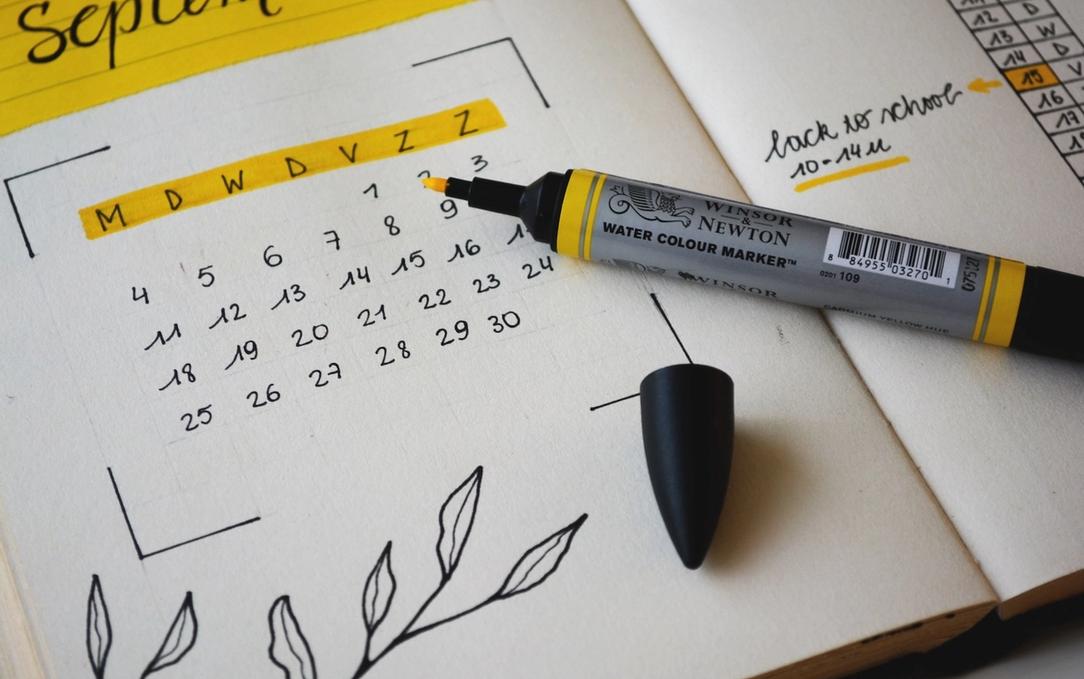 Septem
M D W D V Z Z
1 2 3
4 5 6 7 8 9
11 12 13 14 15 16
18 19 20 21 22 23 24
25 26 27 28 29 30
WINSOR
&
NEWTON
WATER COLOUR MARKER™
8 84955 03270 1
0201 109
WINSOR
CADMIUM YELLOW HUE
back to school
10-14u
12 D
13 W
14 D
15 V
16
17